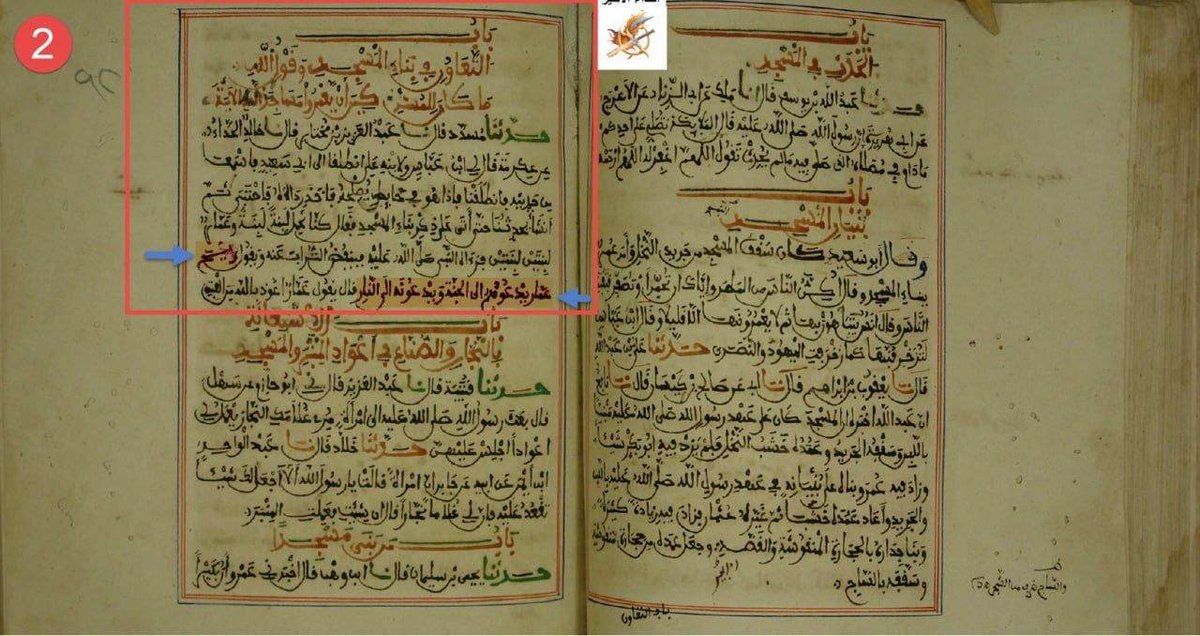 2
باب
الحدث في المسجد
حدثنا عبد الله بن يوسف قال انا ملك عن ابي الزناد عن الاعرج
عن ابي هريرة ان رسول الله صلى الله عليه قال الملايكة تصلي على احدكم
ما دام في مصلاه الذي صلى فيه ما لم يحدث تقول اللهم اغفر له اللهم ارحمه
باب
بنيان المسجد
وقال أبو سعيد كان سقف المسجد من جريد النخل وأمر عمر
ببناء المسجد وقال أكن الناس من المطر وإياك أن تحمر أو تصفر فتفتن
الناس وقال أنس يتباهون بها ثم لا يعمرونها إلا قليلا وقال ابن عباس
لتزخرفنها كما زخرفت اليهود والنصرى حدثنا علي بن عبد الله
قال نا يعقوب بن إبراهيم قال نا أبي عن صالح بن كيسان قال نا نافع
أن عبد الله أخبره أن المسجد كان على عهد رسول الله صلى الله عليه مبنيا
باللبن وسقفه الجريد وعمده خشب النخل فلم يزد فيه أبو بكر شيئا
وزاد فيه عمر وبناه على بنيانه في عهد رسول الله صلى الله عليه باللبن
والجريد وأعاد عمده خشبا ثم غيره عثمان فزاد فيه زيادة كثيرة
وبنا جداره بالحجارة المنقوشة والقصة وجعل عمده من حجارة منقوشة
وسقفه بالساج
باب التعاون
باب
التعاون في بناء المسجد وقول الله
ما كان للمشركين أن يعمروا مساجد الله الآية
حدثنا مسدد قال نا عبد العزيز بن مختار قال نا خالد الحذاء
عن عكرمة قال لي ابن عباس ولابنه علي انطلقا إلى أبي سعيد فاسمعا
من حديثه فانطلقنا فإذا هو في حايط يصلحه فأخذ رداءه فاحتبى ثم
أنشأ يحدثنا حتى أتى على ذكر بناء المسجد فقال كنا نحمل لبنة لبنة وعمار
لبنتين لبنتين فرءاه النبي صلى الله عليه فينفض التراب عنه ويقول ويح
عمار يدعوهم إلى الجنة ويدعونه إلى النار قال يقول عمار أعوذ بالله من الفتن
باب الاستعانة
بالنجار والصناع في أعواد المنبر والمسجد
حدثنا قتيبة قال نا عبد العزيز قال ني أبو حازم عن سهل
قال بعث رسول الله صلى الله عليه إلى امرأة مري غلامك النجار يعمل لي
أعوادا أجلس عليهن حدثنا خلاد قال نا عبد الواحد
ابن أيمن عن أبيه عن جابر أن امرأة قالت يا رسول الله ألا أجعل لك شيئا
تقعد عليه فإن لي غلاما نجارا قال إن شئت فعملت المنبر
باب من بنى مسجدا
حدثنا يحيى بن سليمان قال نا ابن وهب قال أخبرني عمرو أن بكيرا